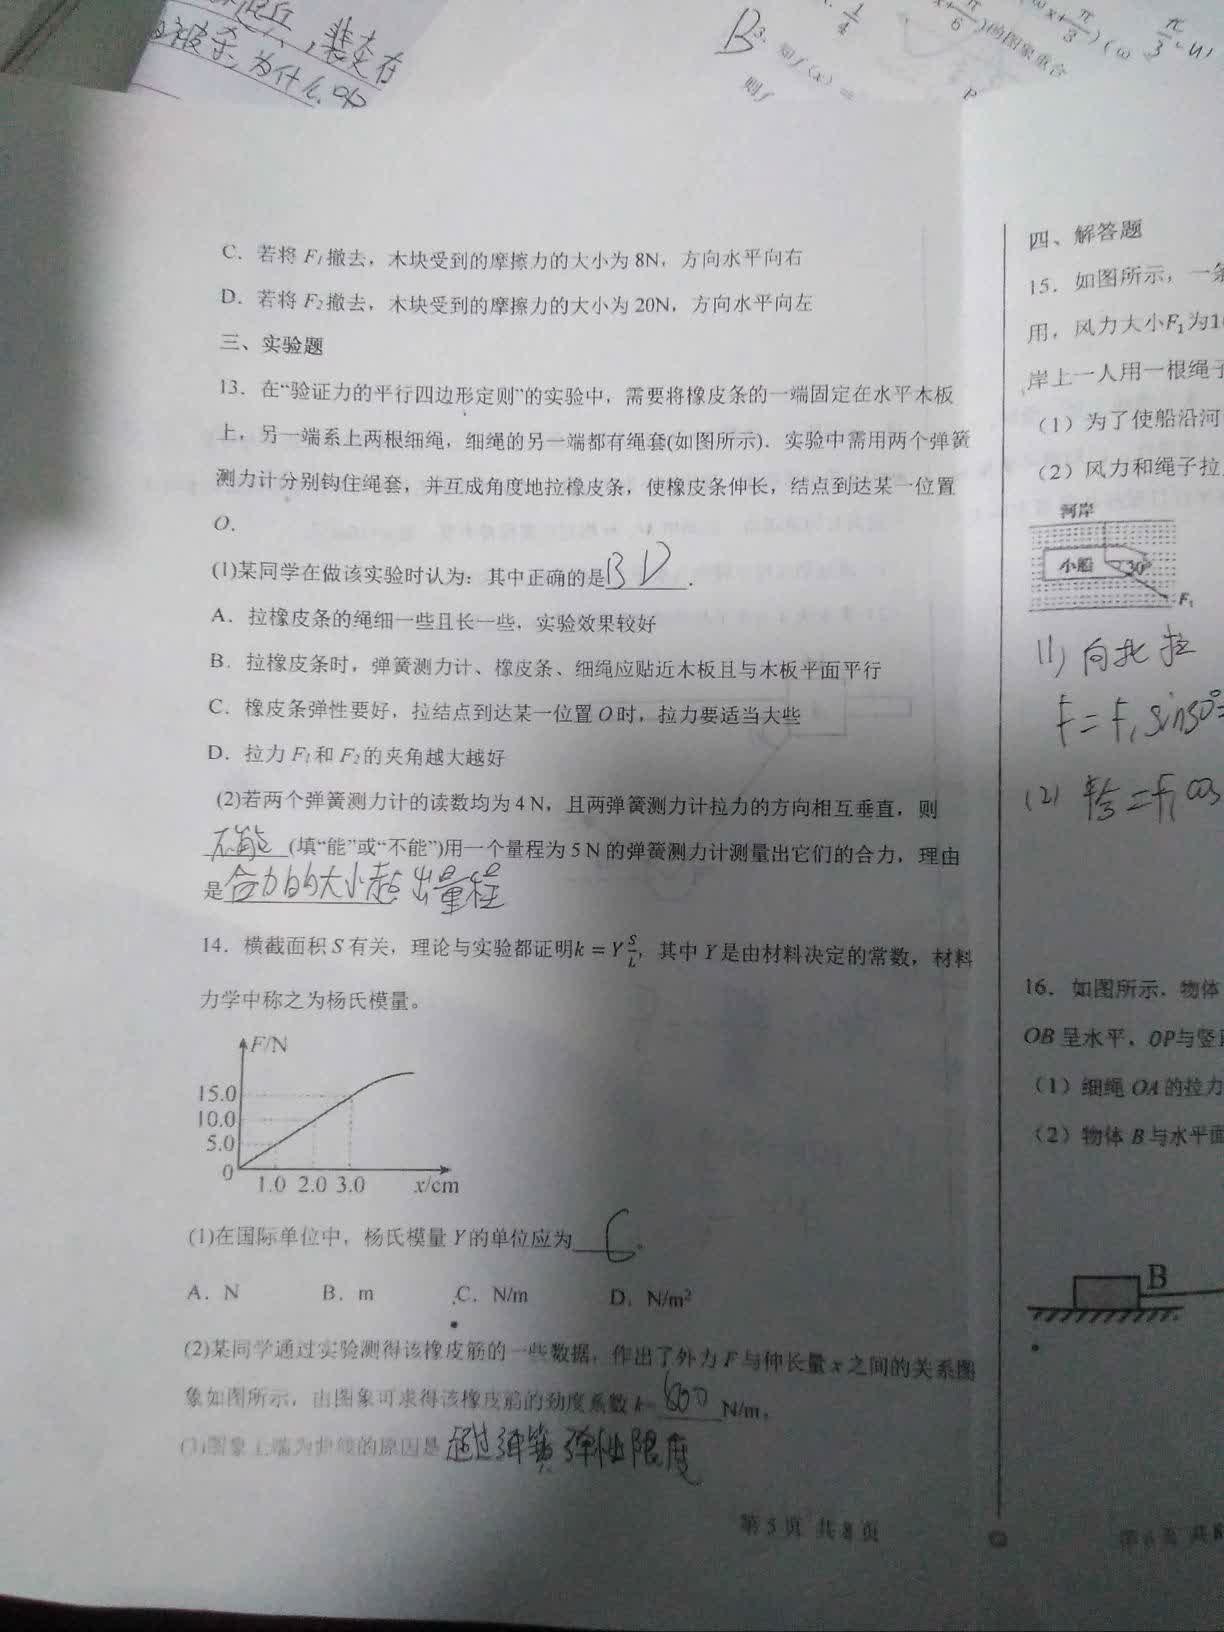 裴矣在
被杀,为什么
B
3.
知f(x)=
则f
1/4
)的图象重合
P
C．若将 F₁撤去，木块受到的摩擦力的大小为 8N，方向水平向右
D．若将 F₂撤去，木块受到的摩擦力的大小为 20N，方向水平向左
三、实验题
13．在“验证力的平行四边形定则”的实验中，需要将橡皮条的一端固定在水平木板
上，另一端系上两根细绳，细绳的另一端都有绳套(如图所示)．实验中需用两个弹簧
测力计分别钩住绳套，并互成角度地拉橡皮条，使橡皮条伸长，结点到达某一位置
O．
(1)某同学在做该实验时认为：其中正确的是 BD ．
A．拉橡皮条的绳细一些且长一些，实验效果较好
B．拉橡皮条时，弹簧测力计、橡皮条、细绳应贴近木板且与木板平面平行
C．橡皮条弹性要好，拉结点到达某一位置 O 时，拉力要适当大些
D．拉力 F₁和 F₂的夹角越大越好
(2)若两个弹簧测力计的读数均为 4 N，且两弹簧测力计拉力的方向相互垂直，则
不能 (填“能”或“不能”)用一个量程为 5 N 的弹簧测力计测量出它们的合力，理由
是 合力的大小超出量程
14．横截面积 S 有关，理论与实验都证明k = Y S/L，其中 Y 是由材料决定的常数，材料
力学中称之为杨氏模量。
F/N
15.0
10.0
5.0
0
1.0 2.0 3.0 x/cm
(1)在国际单位中，杨氏模量 Y 的单位应为 C 。
A．N B．m C．N/m D．N/m²
(2)某同学通过实验测得该橡皮筋的一些数据，作出了外力 F 与伸长量 x 之间的关系图
象如图所示，由图象可求得该橡皮筋的劲度系数 k= 600 N/m。
(3)图象上端为曲线的原因是 超过弹簧弹性限度
第 5 页 共 8 页
四、解答题
15．如图所示，一条
用，风力大小F₁为10
岸上一人用一根绳子
（1）为了使船沿河
（2）风力和绳子拉
河岸
小船 30°
F₁
(1) 向北拉
F=F₁sin30°=
(2) F合=F₁cos
16．如图所示．物体
OB 呈水平，OP与竖直
（1）细绳 OA 的拉力
（2）物体 B 与水平面
B
第 6 页 共 8